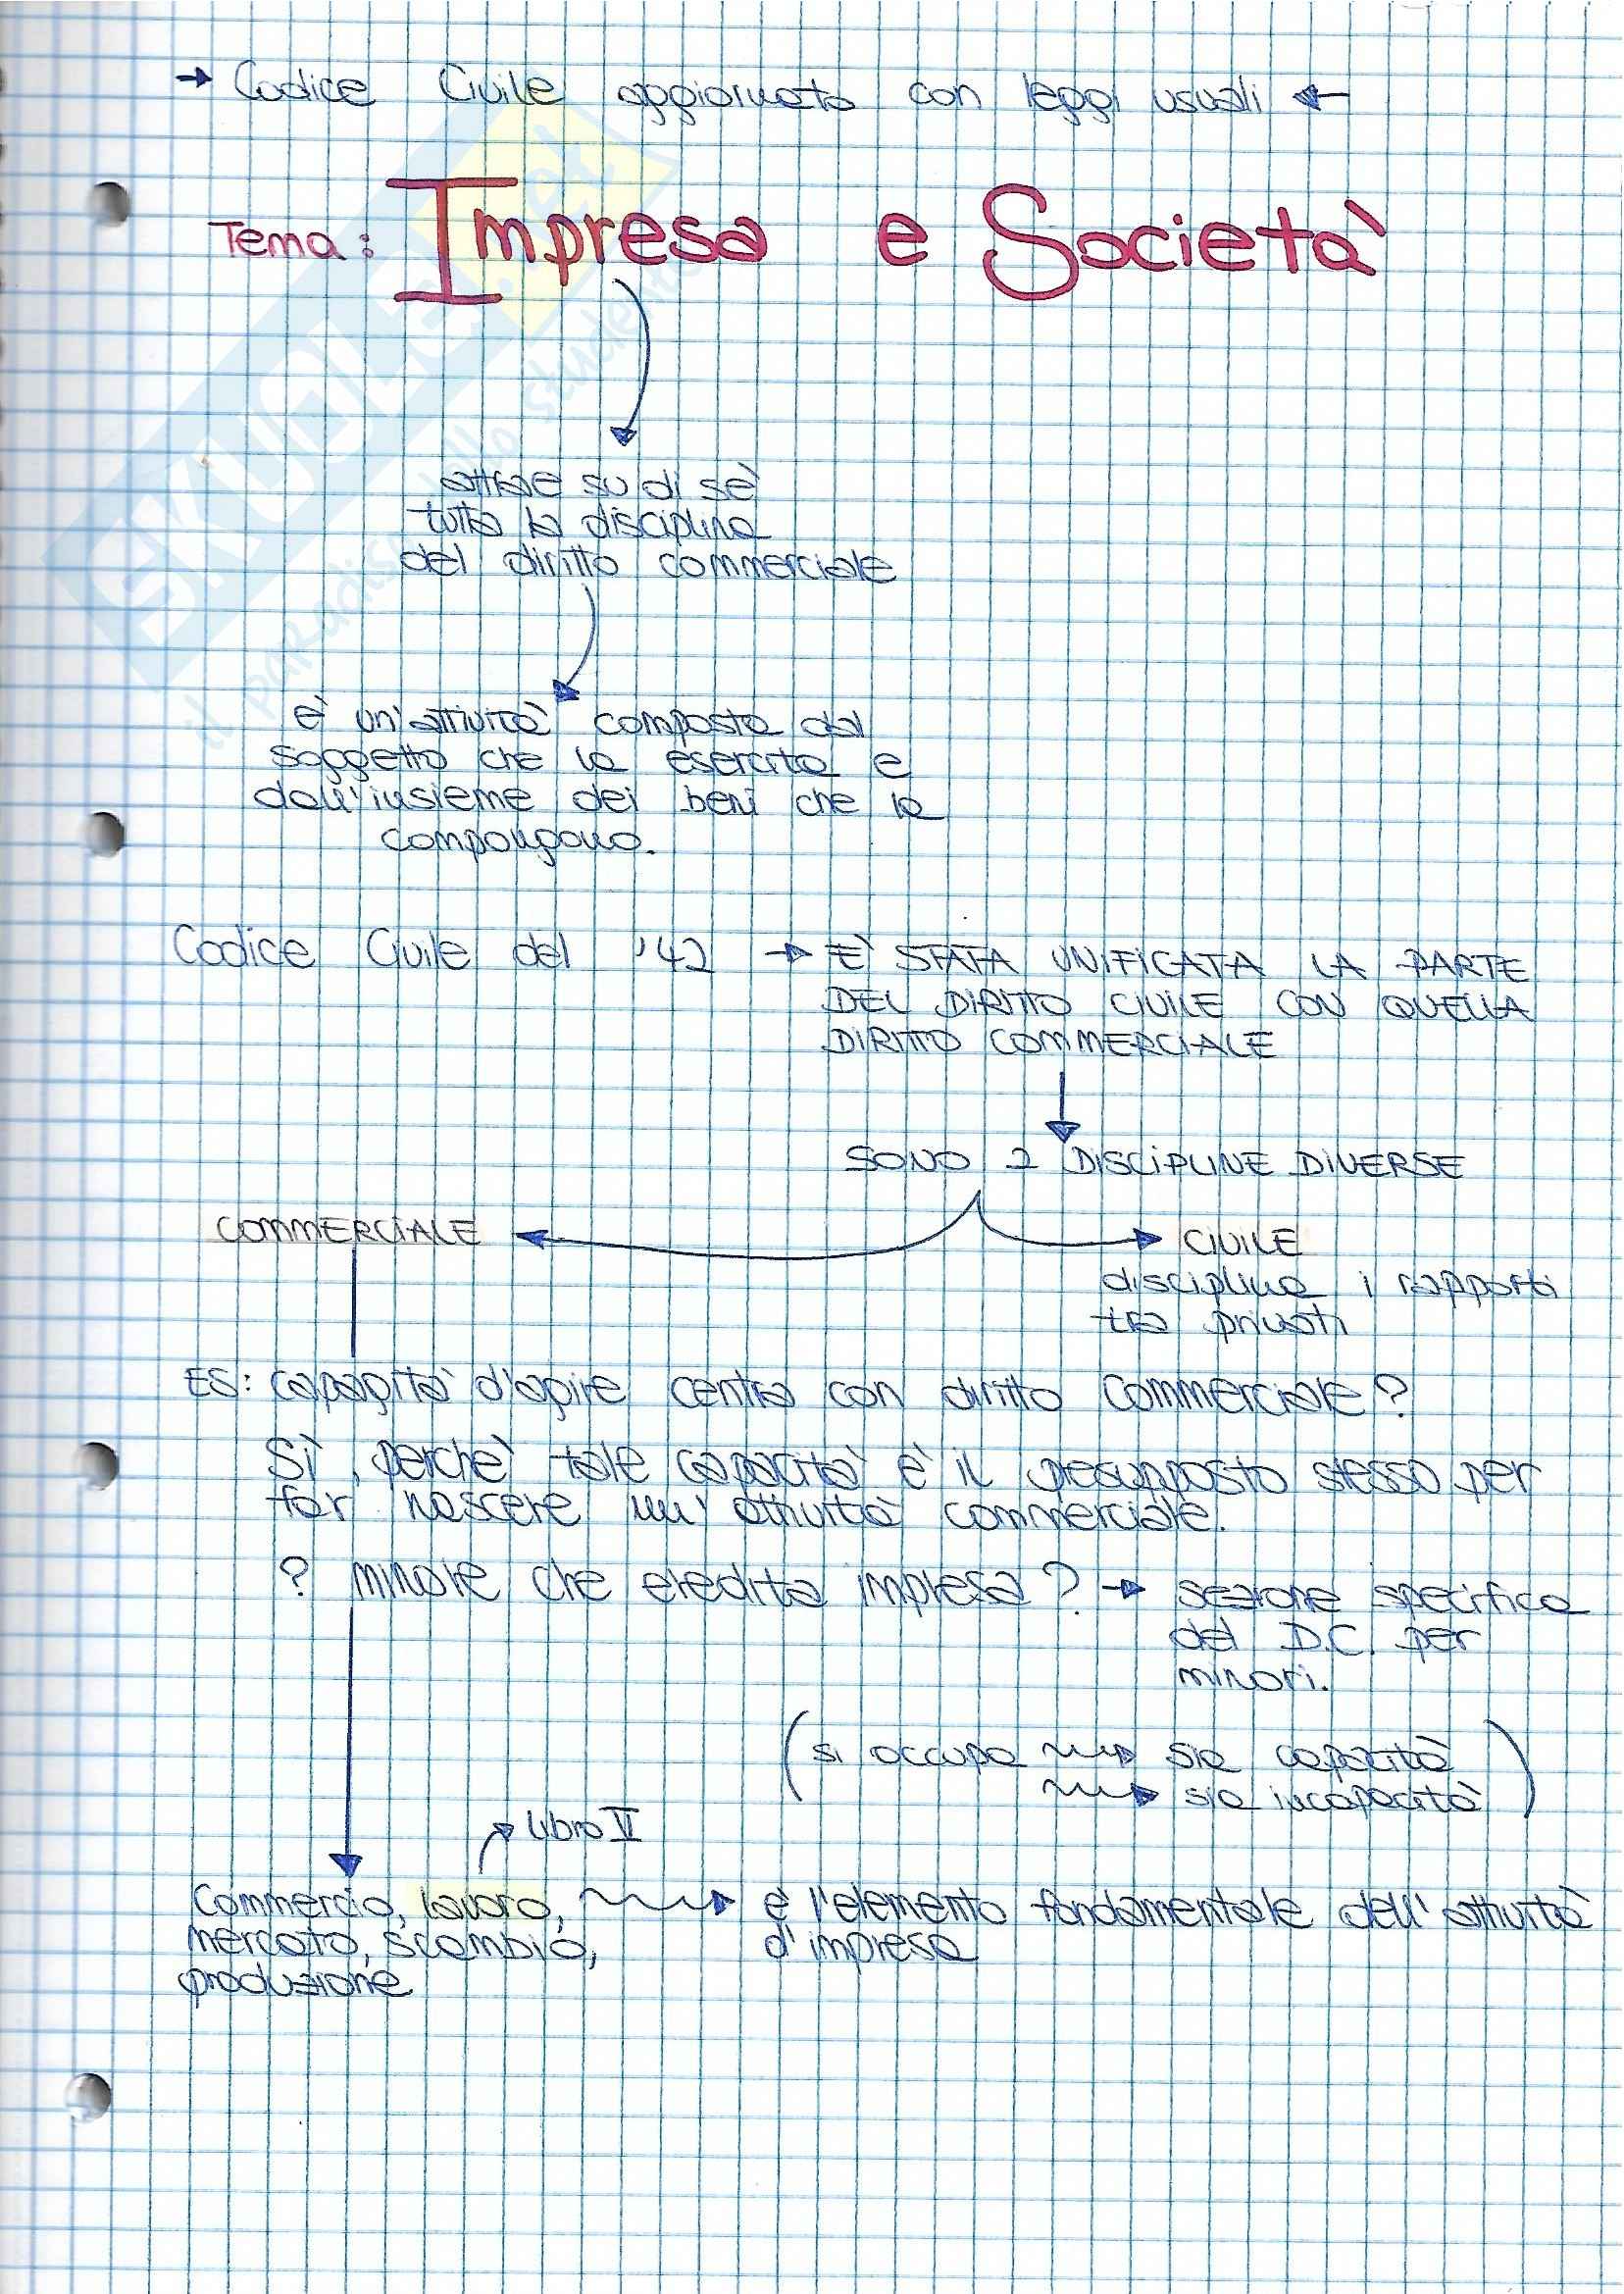 → Codice Civile aggiornato con leggi usuali ←
Tema: Impresa e Società
attrae su di sè
tutta la disciplina
del diritto commerciale
è un'attività composta dal
soggetto che la esercita e
dall'insieme dei beni che la
compongono.
Codice Civile del '42 → E' STATA UNIFICATA LA PARTE
DEL DIRITTO CIVILE CON QUELLA
DIRITTO COMMERCIALE
SONO 2 DISCIPLINE DIVERSE
COMMERCIALE
CIVILE
disciplina i rapporti
tra privati
ES: capacità d'agire centra con diritto commerciale?
Sì, perchè tale capacità è il presupposto stesso per
far nascere un'attività commerciale.
? minore che eredita impresa? → sezione specifica
del D.C. per
minori.
(si occupa → sia capacità
→ sia incapacità)
libro V
Commercio, lavoro, → è l'elemento fondamentale dell'attività
mercato, scambio, d'impresa
produzione
SKUOLA.net
il paradiso dello studente